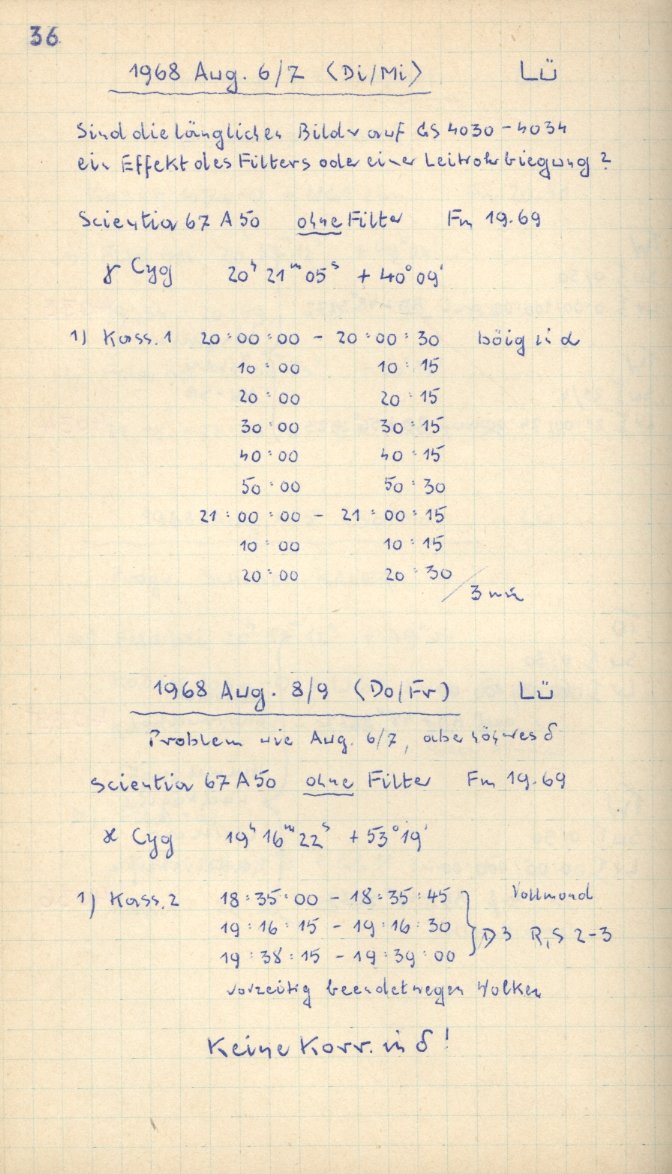 36
1968 Aug. 6/7 (Di/Mi) Lü
Sind die länglichen Bilder auf GS 4030 - 4034
ein Effekt des Filters oder einer Leitrohrbiegung?
Scientia 67 A 50 ohne Filter Fm 19.69
γ Cyg 20ʰ 21ᵐ 05ˢ + 40° 09'
1) Kass. 1 20:00:00 - 20:00:30 böig in α
10:00 10:15
20:00 20:15
30:00 30:15
40:00 40:15
50:00 50:30
21:00:00 - 21:00:15
10:00 10:15
20:00 20:30
3 min
1968 Aug. 8/9 (Do/Fr) Lü
Problem wie Aug. 6/7, aber höheres δ
Scientia 67 A 50 ohne Filter Fm 19.69
ϰ Cyg 19ʰ 16ᵐ 22ˢ + 53° 19'
1) Kass. 2 18:35:00 - 18:35:45 Vollmond
19:16:15 - 19:16:30
19:38:15 - 19:39:00 D3 R, S 2-3
vorzeitig beendet wegen Wolken
Keine Korr. in δ!